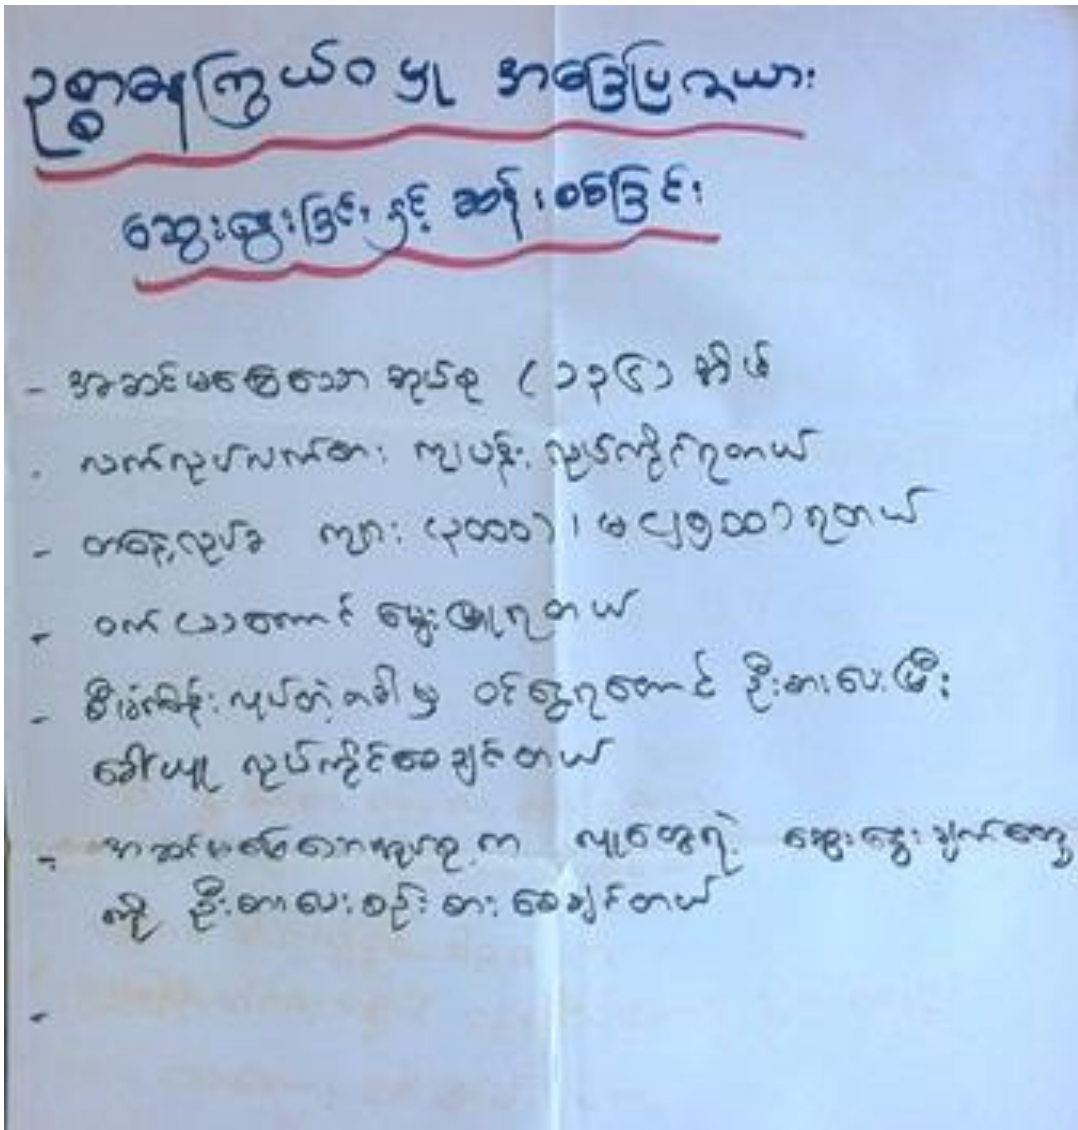 ဥစ္စာဓနကြွယ်ဝမှု အခြေပြဇယား
ဆွေးနွေးခြင်း နှင့် ဆန်းစစ်ခြင်း
- အဆင်မပြေသော အုပ်စု (၁၃၄) အိမ်
- လက်လုပ်လက်စား ကျပန်း လုပ်ကိုင်ရတယ်
- တနေ့လုပ်ခ ကျား (၃၀၀၀)၊ မ ၂၅၀၀ ရတယ်
- ဝက် (၁) ကောင် မွေးမြူရတယ်
- စီမံကိန်း လုပ်တဲ့အခါမှ ဝင်ငွေရအောင် ဦးစားပေးပြီး
ခေါ်ယူ လုပ်ကိုင်စေချင်တယ်
- အဆင်မပြေသောအုပ်စုက လူတွေရဲ့ ဆွေးနွေးချက်တွေ
ကို ဦးစားပေးစဉ်းစားစေချင်တယ်
-